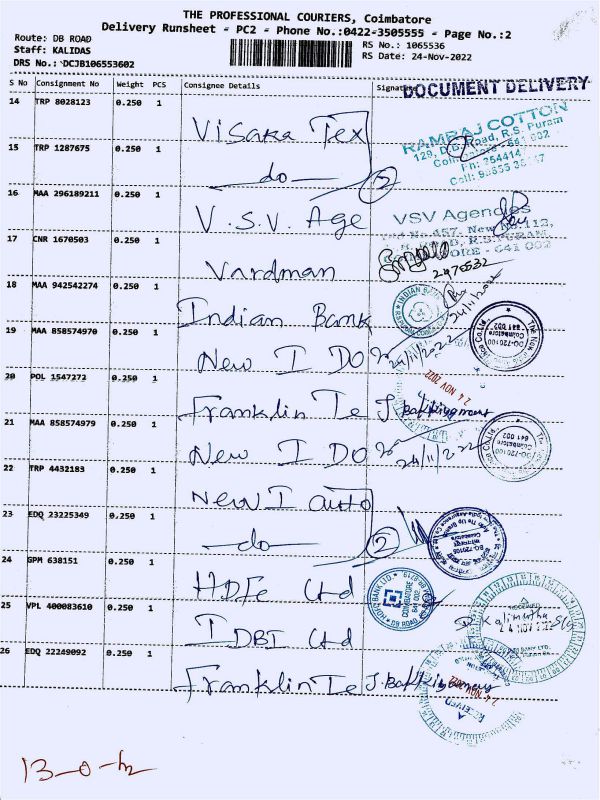 THE PROFESSIONAL COURIERS, Coimbatore
Delivery Runsheet - PC2 - Phone No.:0422-3505555 - Page No.:2
Route: DB ROAD
Staff: KALIDAS
DRS No.: DCJB106553602
RS No.: 1065536
RS Date: 24-Nov-2022
S No Consignment No Weight PCS Consignee Details Signature
DOCUMENT DELIVERY
14 TRP 8028123 0.250 1 Visaka Tex
RAMRAJ COTTON
129, D.B. Road, R.S. Puram
Coimbatore - 641 002
Ph: 254414
15 TRP 1287675 0.250 1 do 2
16 MAA 296189211 0.250 1 V.S.V. Age
VSV Agencies
17 CNR 1670503 0.250 1 Vardman
2470532
18 MAA 942542274 0.250 1 Indian Bank
24/11/2022
19 MAA 858574970 0.250 1 New I DO
24/11/2022
24 NOV 2022
20 POL 1547272 0.250 1 Franklin Te
21 MAA 858574979 0.250 1 New I DO
24/11/22
22 TRP 4432183 0.250 1 New I auto
23 EDQ 23225349 0.250 1 do 2
24 GPM 638151 0.250 1 HDFc Ltd
25 VPL 400083610 0.250 1 IDBI Ltd
24 NOV 2022
26 EDQ 22249092 0.250 1 Franklin Te
24 NOV 2022
RECEIVED